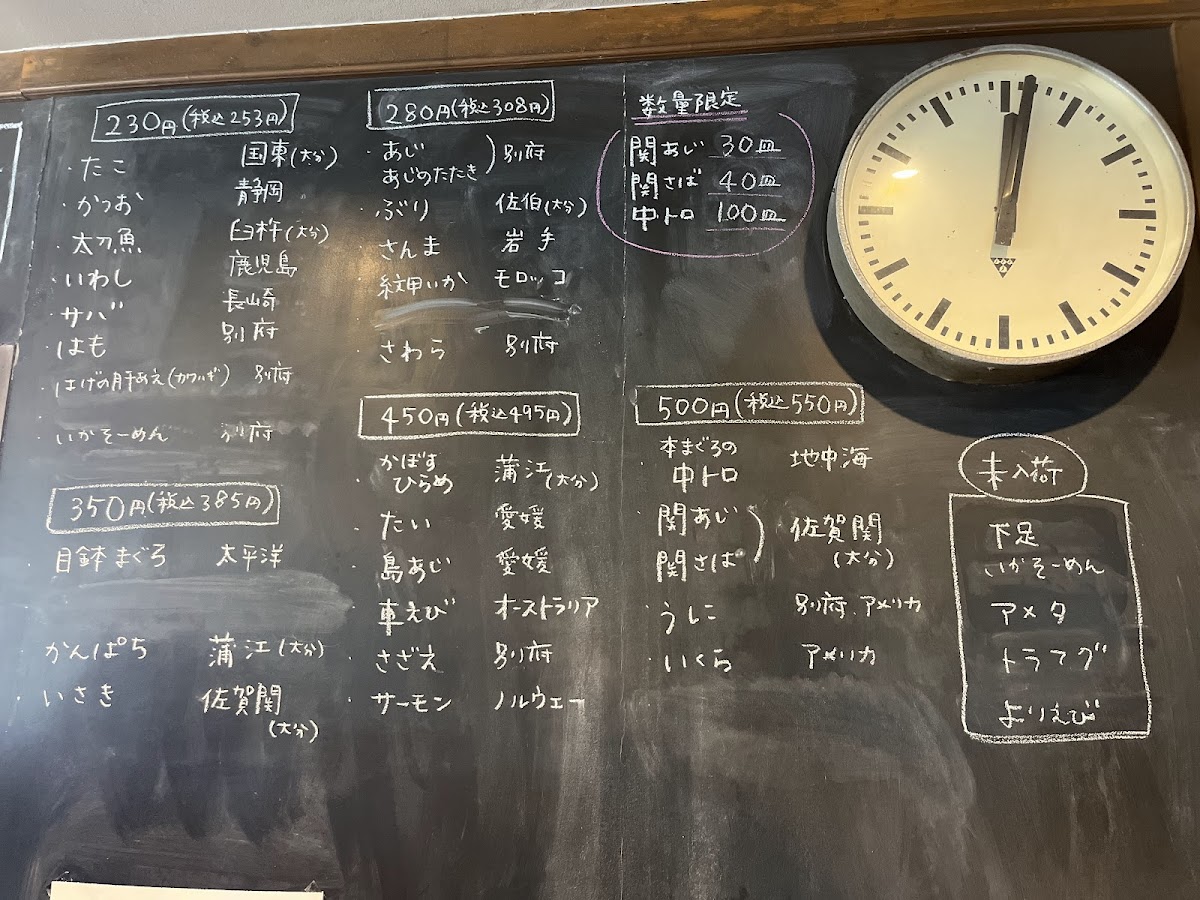 230円(税込253円)
・たこ 国東(大分)
・かつお 静岡
・太刀魚 臼杵(大分)
・いわし 鹿児島
・サバ 長崎
・はも 別府
・はげの肝あえ(カワハギ) 別府
・いかそーめん 別府
350円(税込385円)
・目鉢まぐろ 太平洋
・かんぱち 蒲江(大分)
・いさき 佐賀関
(大分)
280円(税込308円)
・あじ
あじのたたき ) 別府
・ぶり 佐伯(大分)
・さんま 岩手
・紋甲いか モロッコ
・さわら 別府
450円(税込495円)
・かぼす
ひらめ 蒲江(大分)
・たい 愛媛
・島あじ 愛媛
・車えび オーストラリア
・さざえ 別府
・サーモン ノルウェー
数量限定
関あじ 30皿
関さば 40皿
中トロ 100皿
500円(税込550円)
・本まぐろの
中トロ 地中海
・関あじ
関さば ) 佐賀関
(大分)
・うに 別府.アメリカ
・いくら アメリカ
未入荷
下足
いかそーめん
アメタ
トラフグ
よりえび